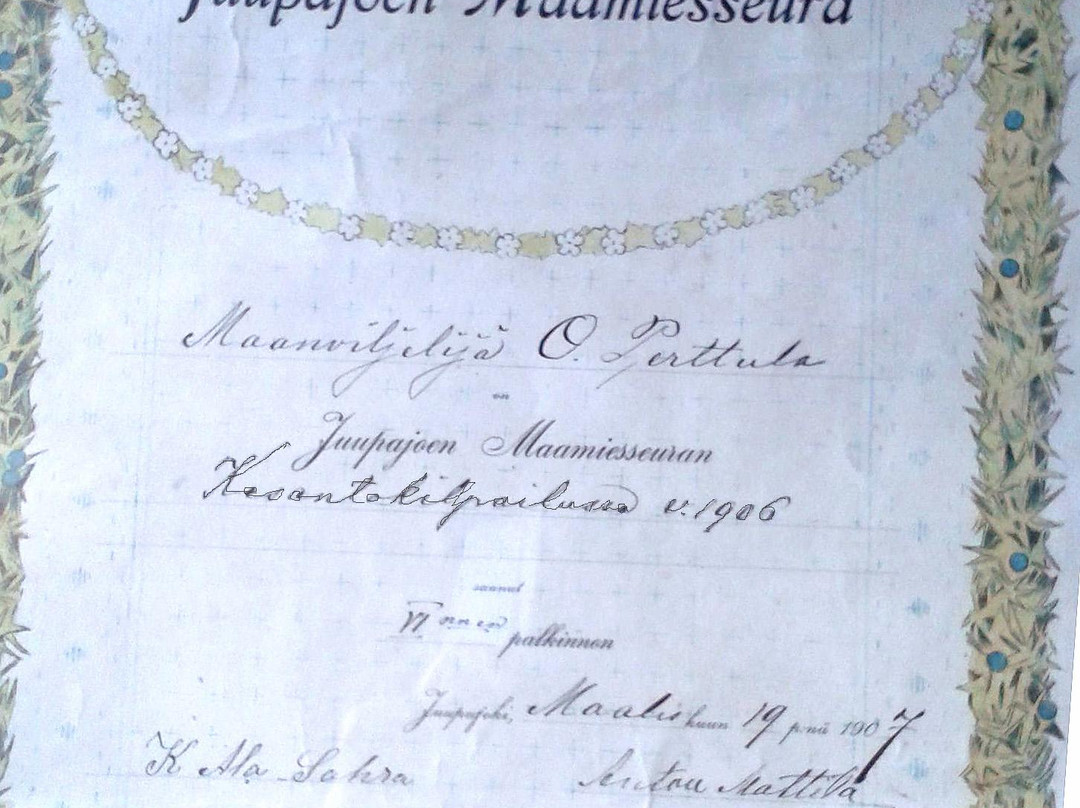 Juupajoen Maamiesseura
Maanviljelijä O. Perttula
on
Juupajoen Maamiesseuran
Kesantokilpailussa v. 1906
saanut
VI nnen palkinnon
Juupajoki, Maaliskuun 19 p:nä 1907
K Ala-Sahra Anton Mattila